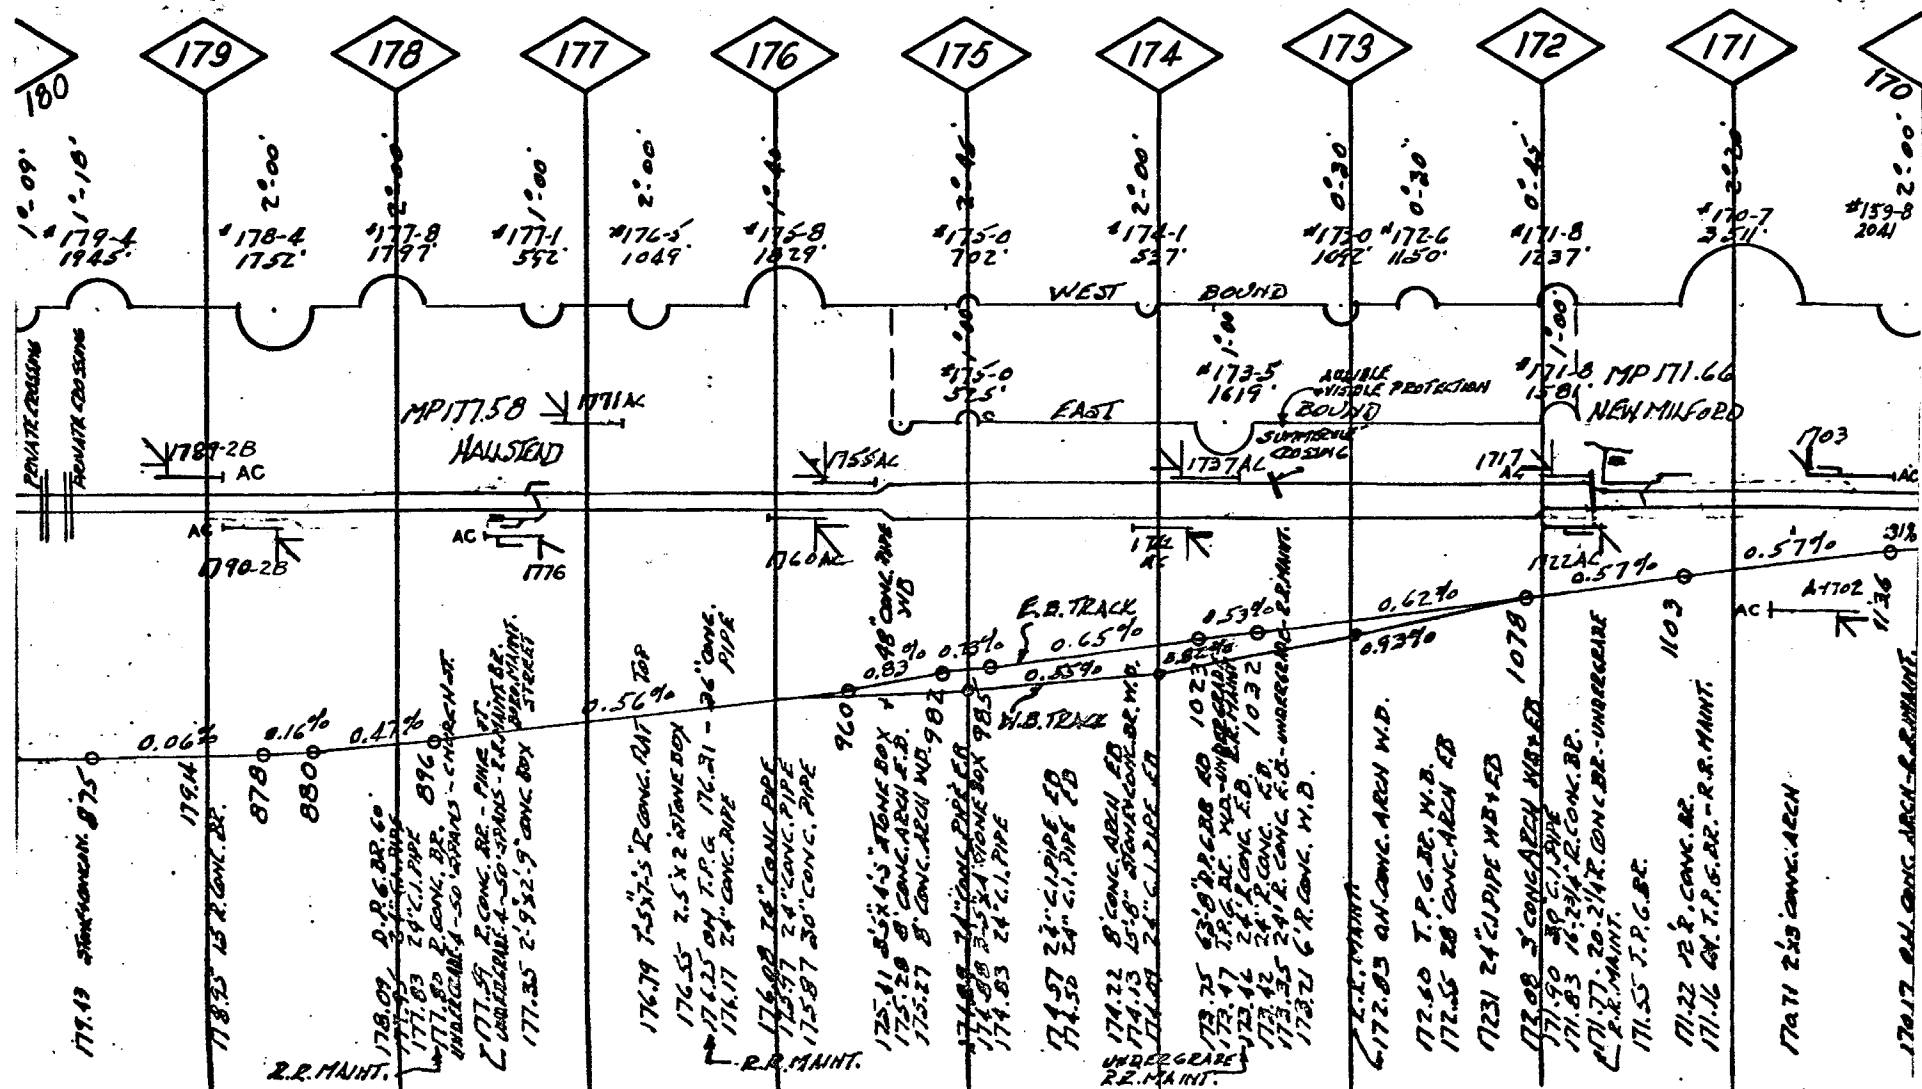 180
179
178
177
176
175
174
173
172
171
170
1°-09'
1°-18'
2°00'
2°00'
1°00'
2°00'
1°40'
2°-46'
2°-00'
0°30'
0°-30'
0°-45'
2°30'
2°-00'
#179-4
1945'
#178-4
1752'
#177-8
1797'
#177-1
592'
#176-5
1049'
#175-8
1829'
#175-0
702'
#174-1
537'
#173-0
1092'
#172-6
1150'
#171-8
1237'
#170-7
3511'
#159-8
2041
WEST BOUND
PRIVATE CROSSING
PRIVATE CROSSING
1°00'
#175-0
525'
1°-00'
#173-5
1619'
AUDIBLE
VISIBLE PROTECTION
1°-00'
#171-8
1581'
MP 171.66
NEW MILFORD
MP177.58
HALLSTEAD
1771AC
EAST BOUND
CROSSING
1789-2B
AC
1755AC
1737AC
1717
AC
1703
AC
AC
1790-2B
AC
1776
1760AC
AC
1722AC
AC
A-1702
0.06%
0.16%
0.47%
0.56%
0.83%
0.73%
0.65%
0.53%
0.62%
0.57%
0.57%
.31%
0.55%
0.82%
0.93%
E.B. TRACK
W.B. TRACK
875
878
880
896
960
982
985
1023
1032
1078
1103
1136
179.43
179.14
178.95 15' R. CONC. BR.
178.09 D.P.G. BR. 60
177.83 24" C.I. PIPE
177.80 R. CONC. BR.
UNDERGRADE 4-50' SPANS - CHURCH ST.
R.R. MAINT.
177.59 R. CONC. BR. - PINE ST.
UNDERGRADE 4-50' SPANS - R.R. MAINT. BR.
BORO. MAINT. STREET
177.35 2'-9"X2'-9" CONC. BOX
176.79 7'-5"X7'-5" R. CONC. RAT TOP
176.55 2.5'X2' STONE BOX
176.25 OH T.P.G. 176.21 - 36" CONC. PIPE
176.17 24" CONC. PIPE
R.R. MAINT.
176.08 24" CONC. PIPE
175.97 24" CONC. PIPE
175.87 30" CONC. PIPE
175.41 8'5"X4'-5" STONE BOX + 48" CONC. PIPE WB
175.28 8' CONC. ARCH E.B.
175.27 8' CONC. ARCH WB
174.88 24" CONC. PIPE EB
174.83 24" C.I. PIPE
174.57 24" C.I. PIPE EB
174.50 24" C.I. PIPE EB
174.22 8' CONC. ARCH EB
174.13 15'-8" STONE & CONC. BR. W.B.
174.09 24" C.I. PIPE EB
UNDERGRADE
R.R. MAINT.
173.75 63'-8" D.P.G. BR EB
173.47 T.P.G. BR. W.B. - UNDERGRADE R.R. MAINT.
173.46 24' R. CONC. E.B.
173.42 24' R. CONC. E.B.
173.35 24' R. CONC. E.B. - UNDERGRADE - R.R. MAINT.
173.21 6' R. CONC. W.B.
R.R. MAINT.
172.83 O.H. CONC. ARCH W.B.
172.60 T.P.G. BR. W.B.
172.55 28' CONC. ARCH EB
172.31 24" C.I. PIPE WB+EB
172.08 3' CONC. ARCH WB+EB
171.90 30" C.I. PIPE
171.83 16'-23/4" R. CONC. BR.
171.77 20'-2 1/4" R. CONC. BR. - UNDERGRADE
R.R. MAINT.
171.55 T.P.G. BR.
171.22 12' R. CONC. BR.
171.16 OH. T.P.G. BR. - R.R. MAINT.
170.71 2'X3' CONC. ARCH
170.17 O.H. CONC. ARCH - R.R. MAINT.